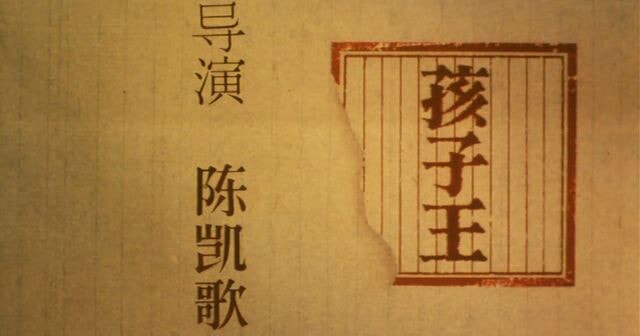 孩子王
导演
陈凯歌